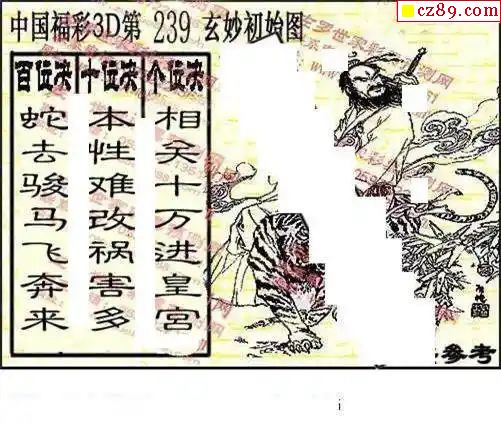 cz89.com
中国福彩3D第 239 玄妙初始图
百位决 十位决 个位决
蛇去骏马飞奔来
本性难改祸害多
相关十万进皇宫
参考